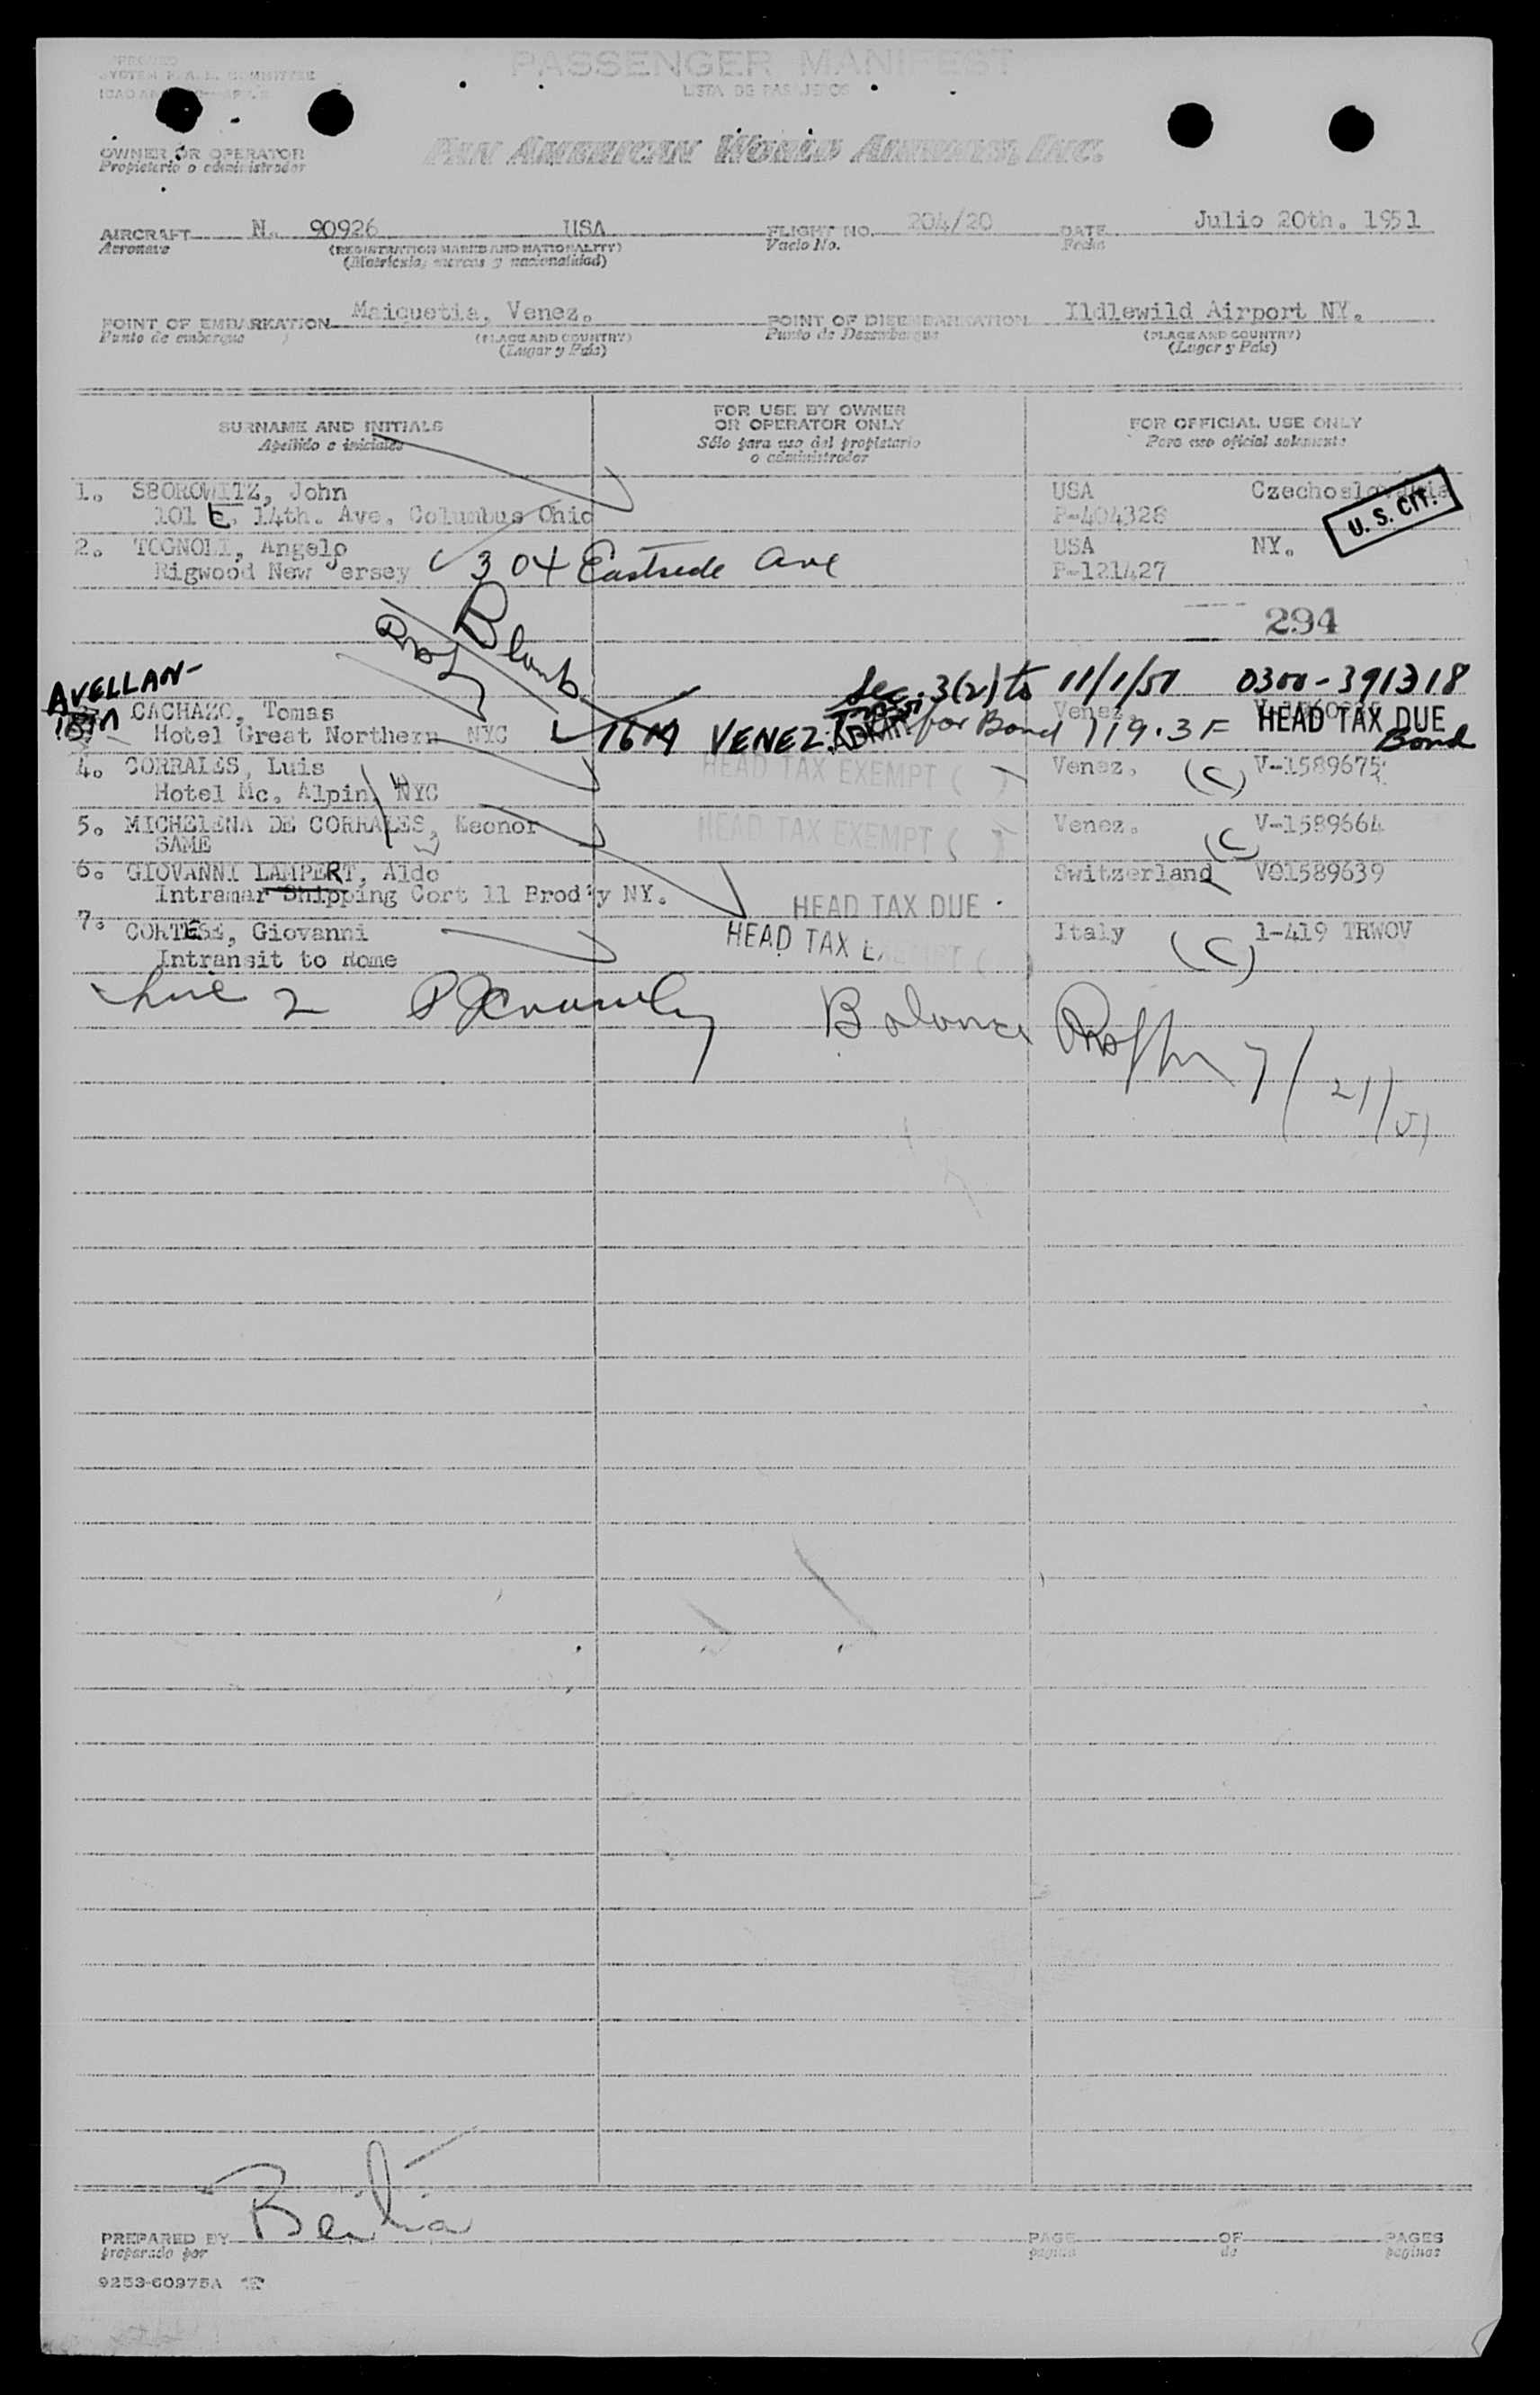 PASSENGER MANIFEST
LISTA DE PASAJEROS
OWNER OR OPERATOR
Propietario o administrador
PAN AMERICAN WORLD AIRWAYS, INC.
AIRCRAFT N. 90926 USA FLIGHT NO. 204/20 DATE Julio 20th. 1951
Aeronave (REGISTRATION MARKS AND NATIONALITY) Vuelo No. Fecha
(Matricula, marcas y nacionalidad)
POINT OF EMBARKATION Maiquetia, Venez. POINT OF DISEMBARKATION Ildlewild Airport NY.
Punto de embarque (PLACE AND COUNTRY) Punto de Desembarque (PLACE AND COUNTRY)
(Lugar y País) (Lugar y País)
SURNAME AND INITIALS FOR USE BY OWNER OR OPERATOR ONLY FOR OFFICIAL USE ONLY
Apellido e iniciales Sólo para uso del propietario o administrador Para uso oficial solamente
1. SBOROWITZ, John USA Czechoslovakia
101 E. 14th. Ave. Columbus Ohio P-404328 U. S. CIT.
2. TOGNOLI, Angelo USA NY.
Rigwood New Jersey 304 Eastside Ave P-121427
294
Blank
AVELLAN- Sec. 3(2) to 11/1/51 0300-391318
CACHAZO, Tomas Venez.
Hotel Great Northern NYC 16M VENEZ. for Bond 119.3F HEAD TAX DUE Bond
4. CORRALES, Luis HEAD TAX EXEMPT ( ) Venez. (C) V-1589675
Hotel Mc. Alpin, NYC
5. MICHELENA DE CORRALES, Leonor HEAD TAX EXEMPT ( ) Venez. (C) V-1589664
SAME
6. GIOVANNI LAMPERT, Aldo Switzerland V01589639
Intramar Shipping Cort 11 Brod'y NY. HEAD TAX DUE
7. CORTESE, Giovanni HEAD TAX EXEMPT ( ) Italy (C) 1-419 TRWOV
Intransit to Rome
Line 2 Balance 7/21/51
PREPARED BY PAGE OF PAGES
preparado por pagina de paginas
9253-60975A